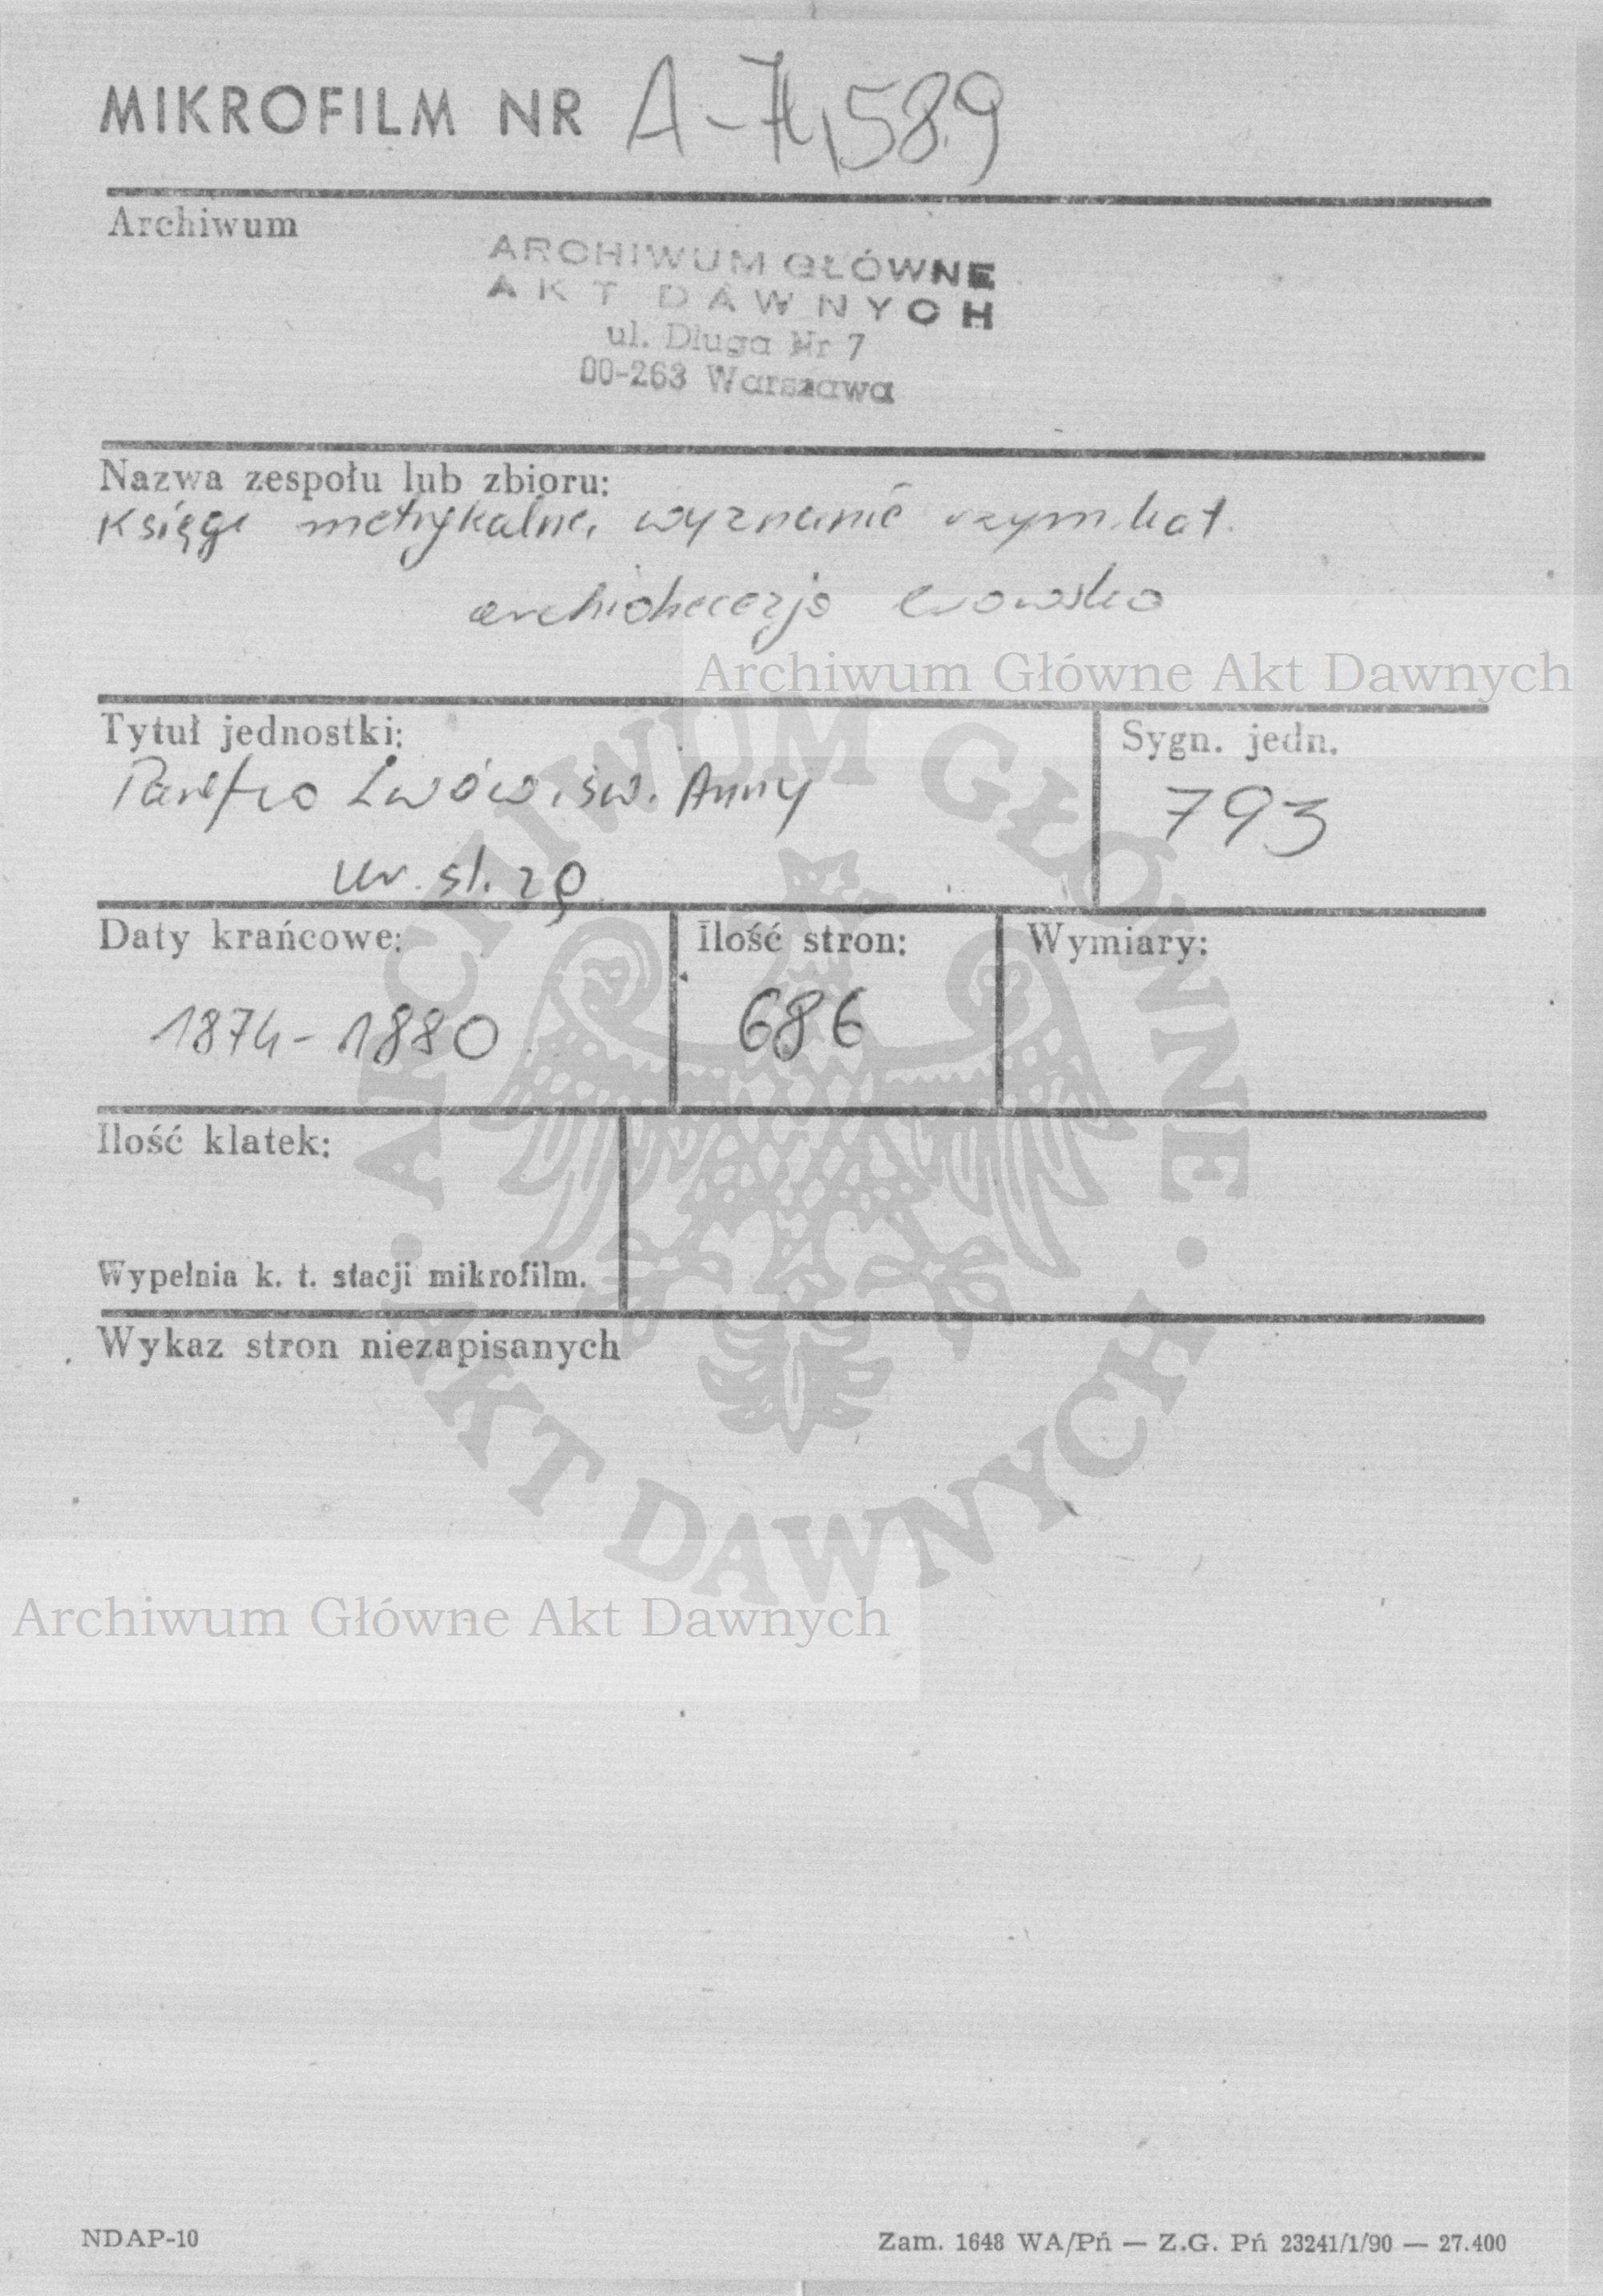 MIKROFILM NR A-71589
Archiwum
ARCHIWUM GŁÓWNE
AKT DAWNYCH
ul. Długa Nr 7
00-263 Warszawa
Nazwa zespołu lub zbioru:
Księgi metrykalne, wyznanie rzym.kat.
archidiecezja lwowska
Archiwum Główne Akt Dawnych
Tytuł jednostki:
Parafia Lwów, św. Anny
ur. śl. zg.
Sygn. jedn.
793
Daty krańcowe:
1874-1880
Ilość stron:
686
Wymiary:
Ilość klatek:
Wypełnia k. t. stacji mikrofilm.
Wykaz stron niezapisanych
ARCHIWUM GŁÓWNE · AKT DAWNYCH ·
Archiwum Główne Akt Dawnych
NDAP-10
Zam. 1648 WA/Pń — Z.G. Pń 23241/1/90 — 27.400